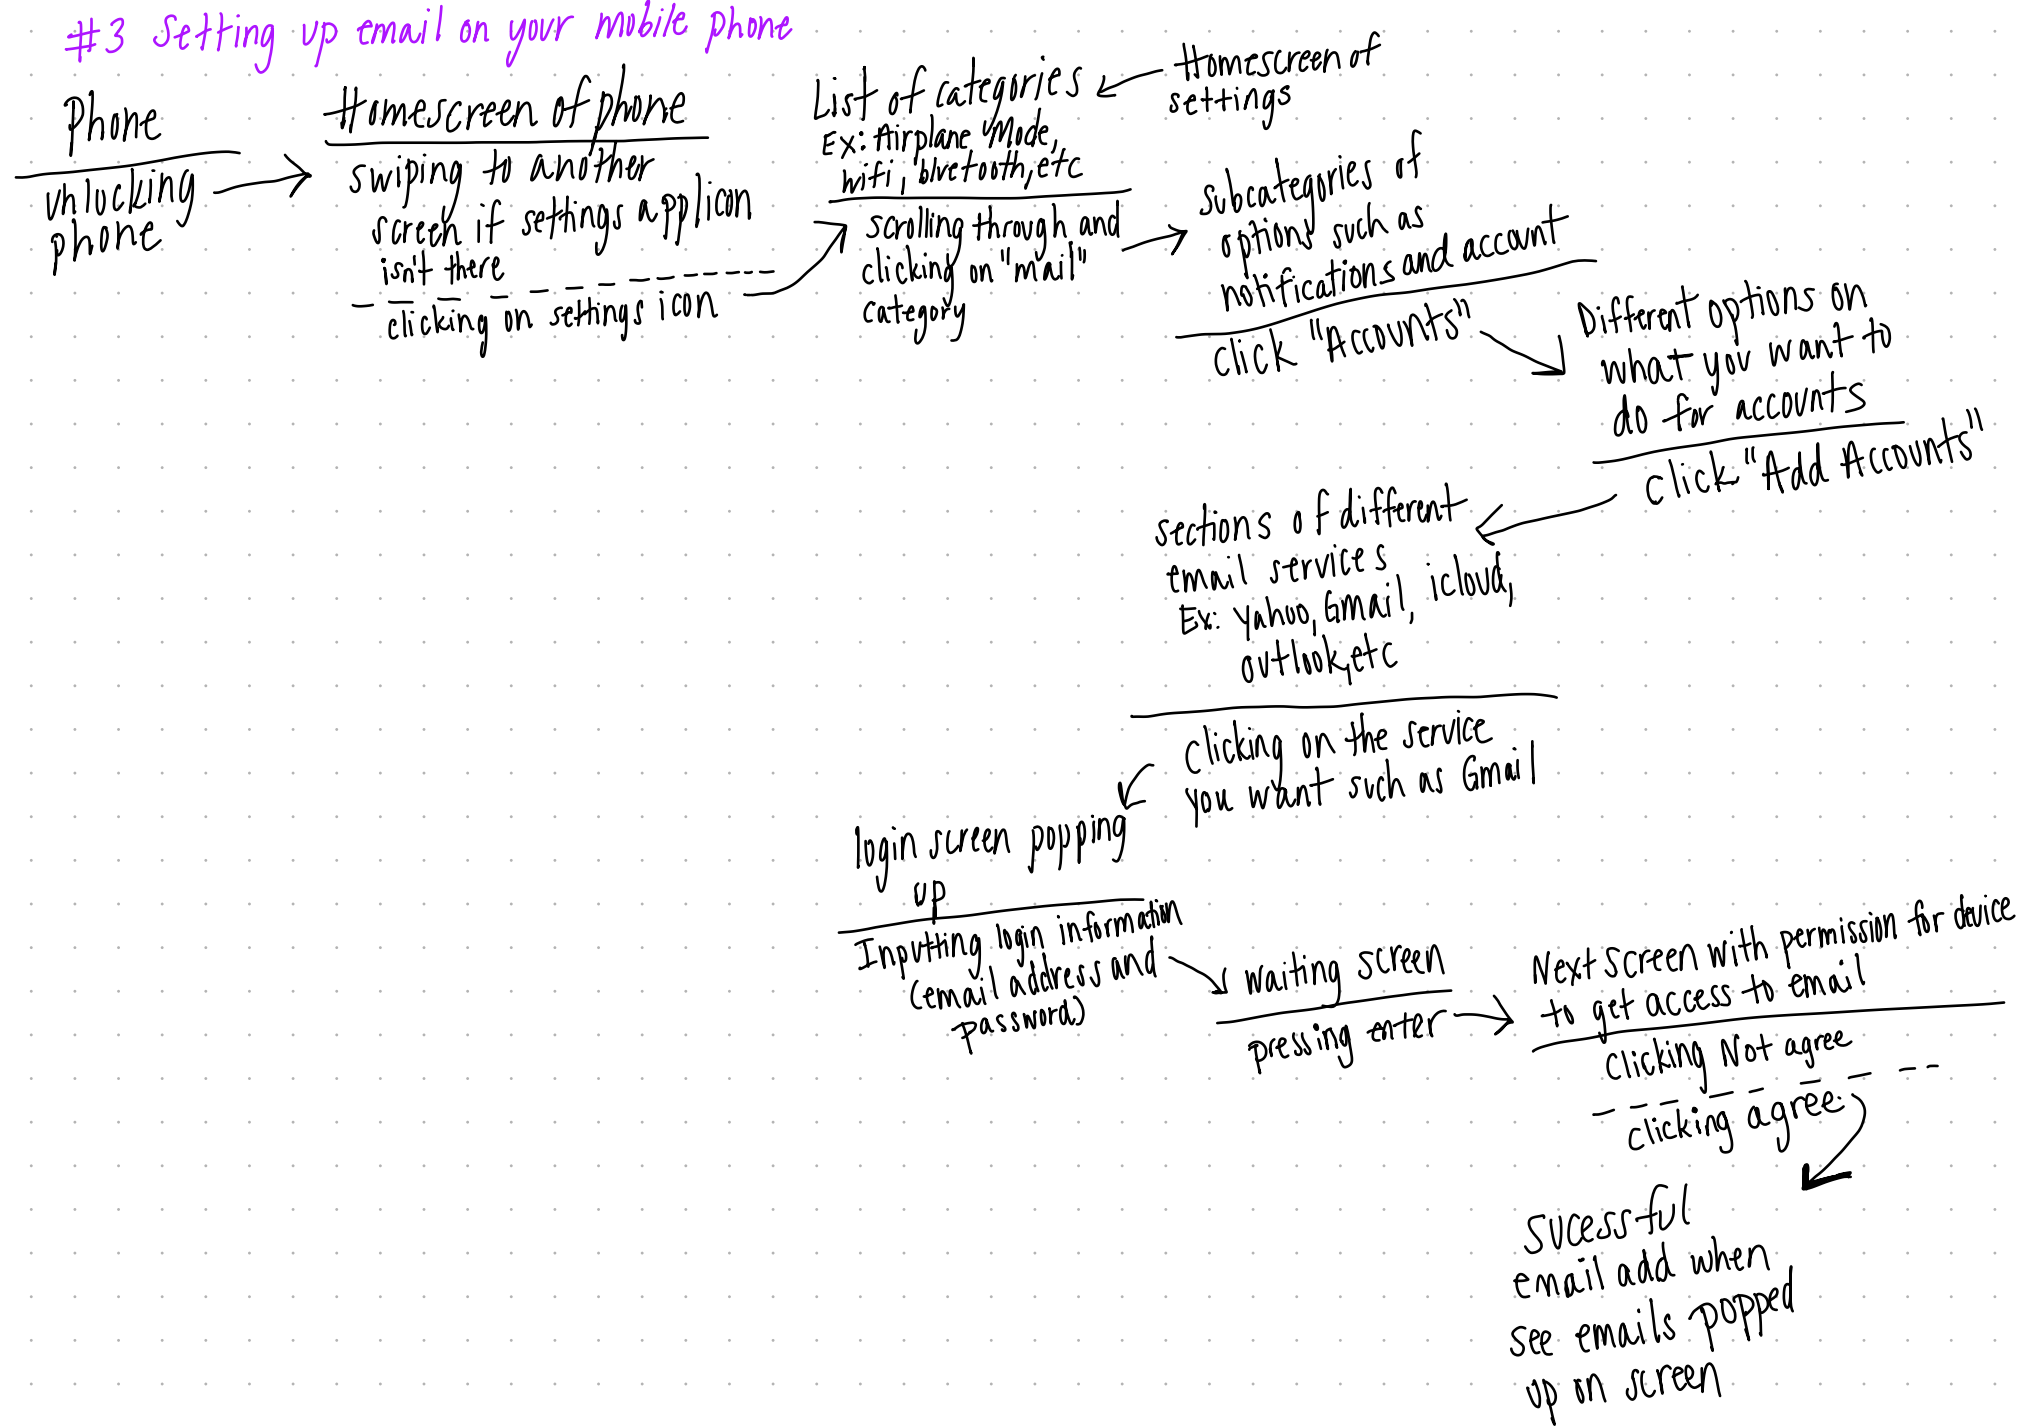 #3 Setting up email on your mobile phone
Phone
unlocking
phone
Homescreen of phone
swiping to another
screen if settings app icon
isn't there
clicking on settings icon
List of categories
Ex: Airplane Mode,
wifi, bluetooth, etc
Homescreen of
settings
scrolling through and
clicking on "mail"
category
subcategories of
options such as
notifications and account
click "Accounts"
Different options on
what you want to
do for accounts
click "Add Accounts"
sections of different
email services
Ex: Yahoo, Gmail, icloud,
outlook, etc
clicking on the service
you want such as Gmail
login screen popping
up
Inputting login information
(email address and
password)
waiting screen
pressing enter
Next screen with permission for device
to get access to email
clicking Not agree
clicking agree
Sucessful
email add when
see emails popped
up on screen